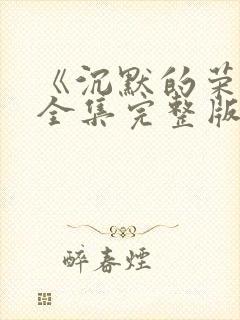 《沉默的荣
全集完整版
醉春煙